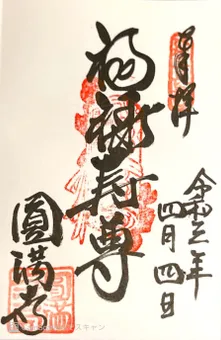 奉拝
福禄寿尊
令和三年
四月四日
圓満寺